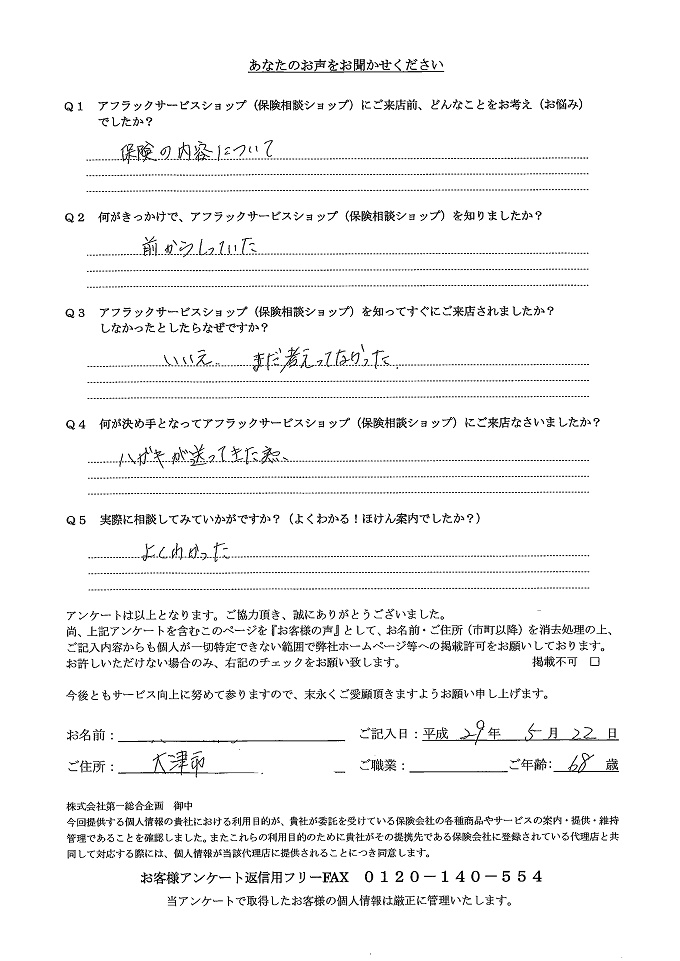 あなたのお声をお聞かせください
Q1 アフラックサービスショップ（保険相談ショップ）にご来店前、どんなことをお考え（お悩み）
でしたか？
保険の内容について
Q2 何がきっかけで、アフラックサービスショップ（保険相談ショップ）を知りましたか？
前からしっていた
Q3 アフラックサービスショップ（保険相談ショップ）を知ってすぐにご来店されましたか？
しなかったとしたらなぜですか？
いいえ. まだ考えってなかった.
Q4 何が決め手となってアフラックサービスショップ（保険相談ショップ）にご来店なさいましたか？
ハガキが送ってきた為、
Q5 実際に相談してみていかがですか？（よくわかる！ほけん案内でしたか？）
よくわかった
アンケートは以上となります。ご協力頂き、誠にありがとうございました。
尚、上記アンケートを含むこのページを『お客様の声』として、お名前・ご住所（市町以降）を消去処理の上、
ご記入内容からも個人が一切特定できない範囲で弊社ホームページ等への掲載許可をお願いしております。
お許しいただけない場合のみ、右記のチェックをお願い致します。 掲載不可 □
今後ともサービス向上に努めて参りますので、末永くご愛顧頂きますようお願い申し上げます。
お名前： ご記入日：平成 29年 5月 22日
ご住所： 大津市 ご職業： ご年齢： 68 歳
株式会社第一総合企画 御中
今回提供する個人情報の貴社における利用目的が、貴社が委託を受けている保険会社の各種商品やサービスの案内・提供・維持
管理であることを確認しました。またこれらの利用目的のために貴社がその提携先である保険会社に登録されている代理店と共
同して対応する際には、個人情報が当該代理店に提供されることにつき同意します。
お客様アンケート返信用フリーFAX 0120－140－554
当アンケートで取得したお客様の個人情報は厳正に管理いたします。